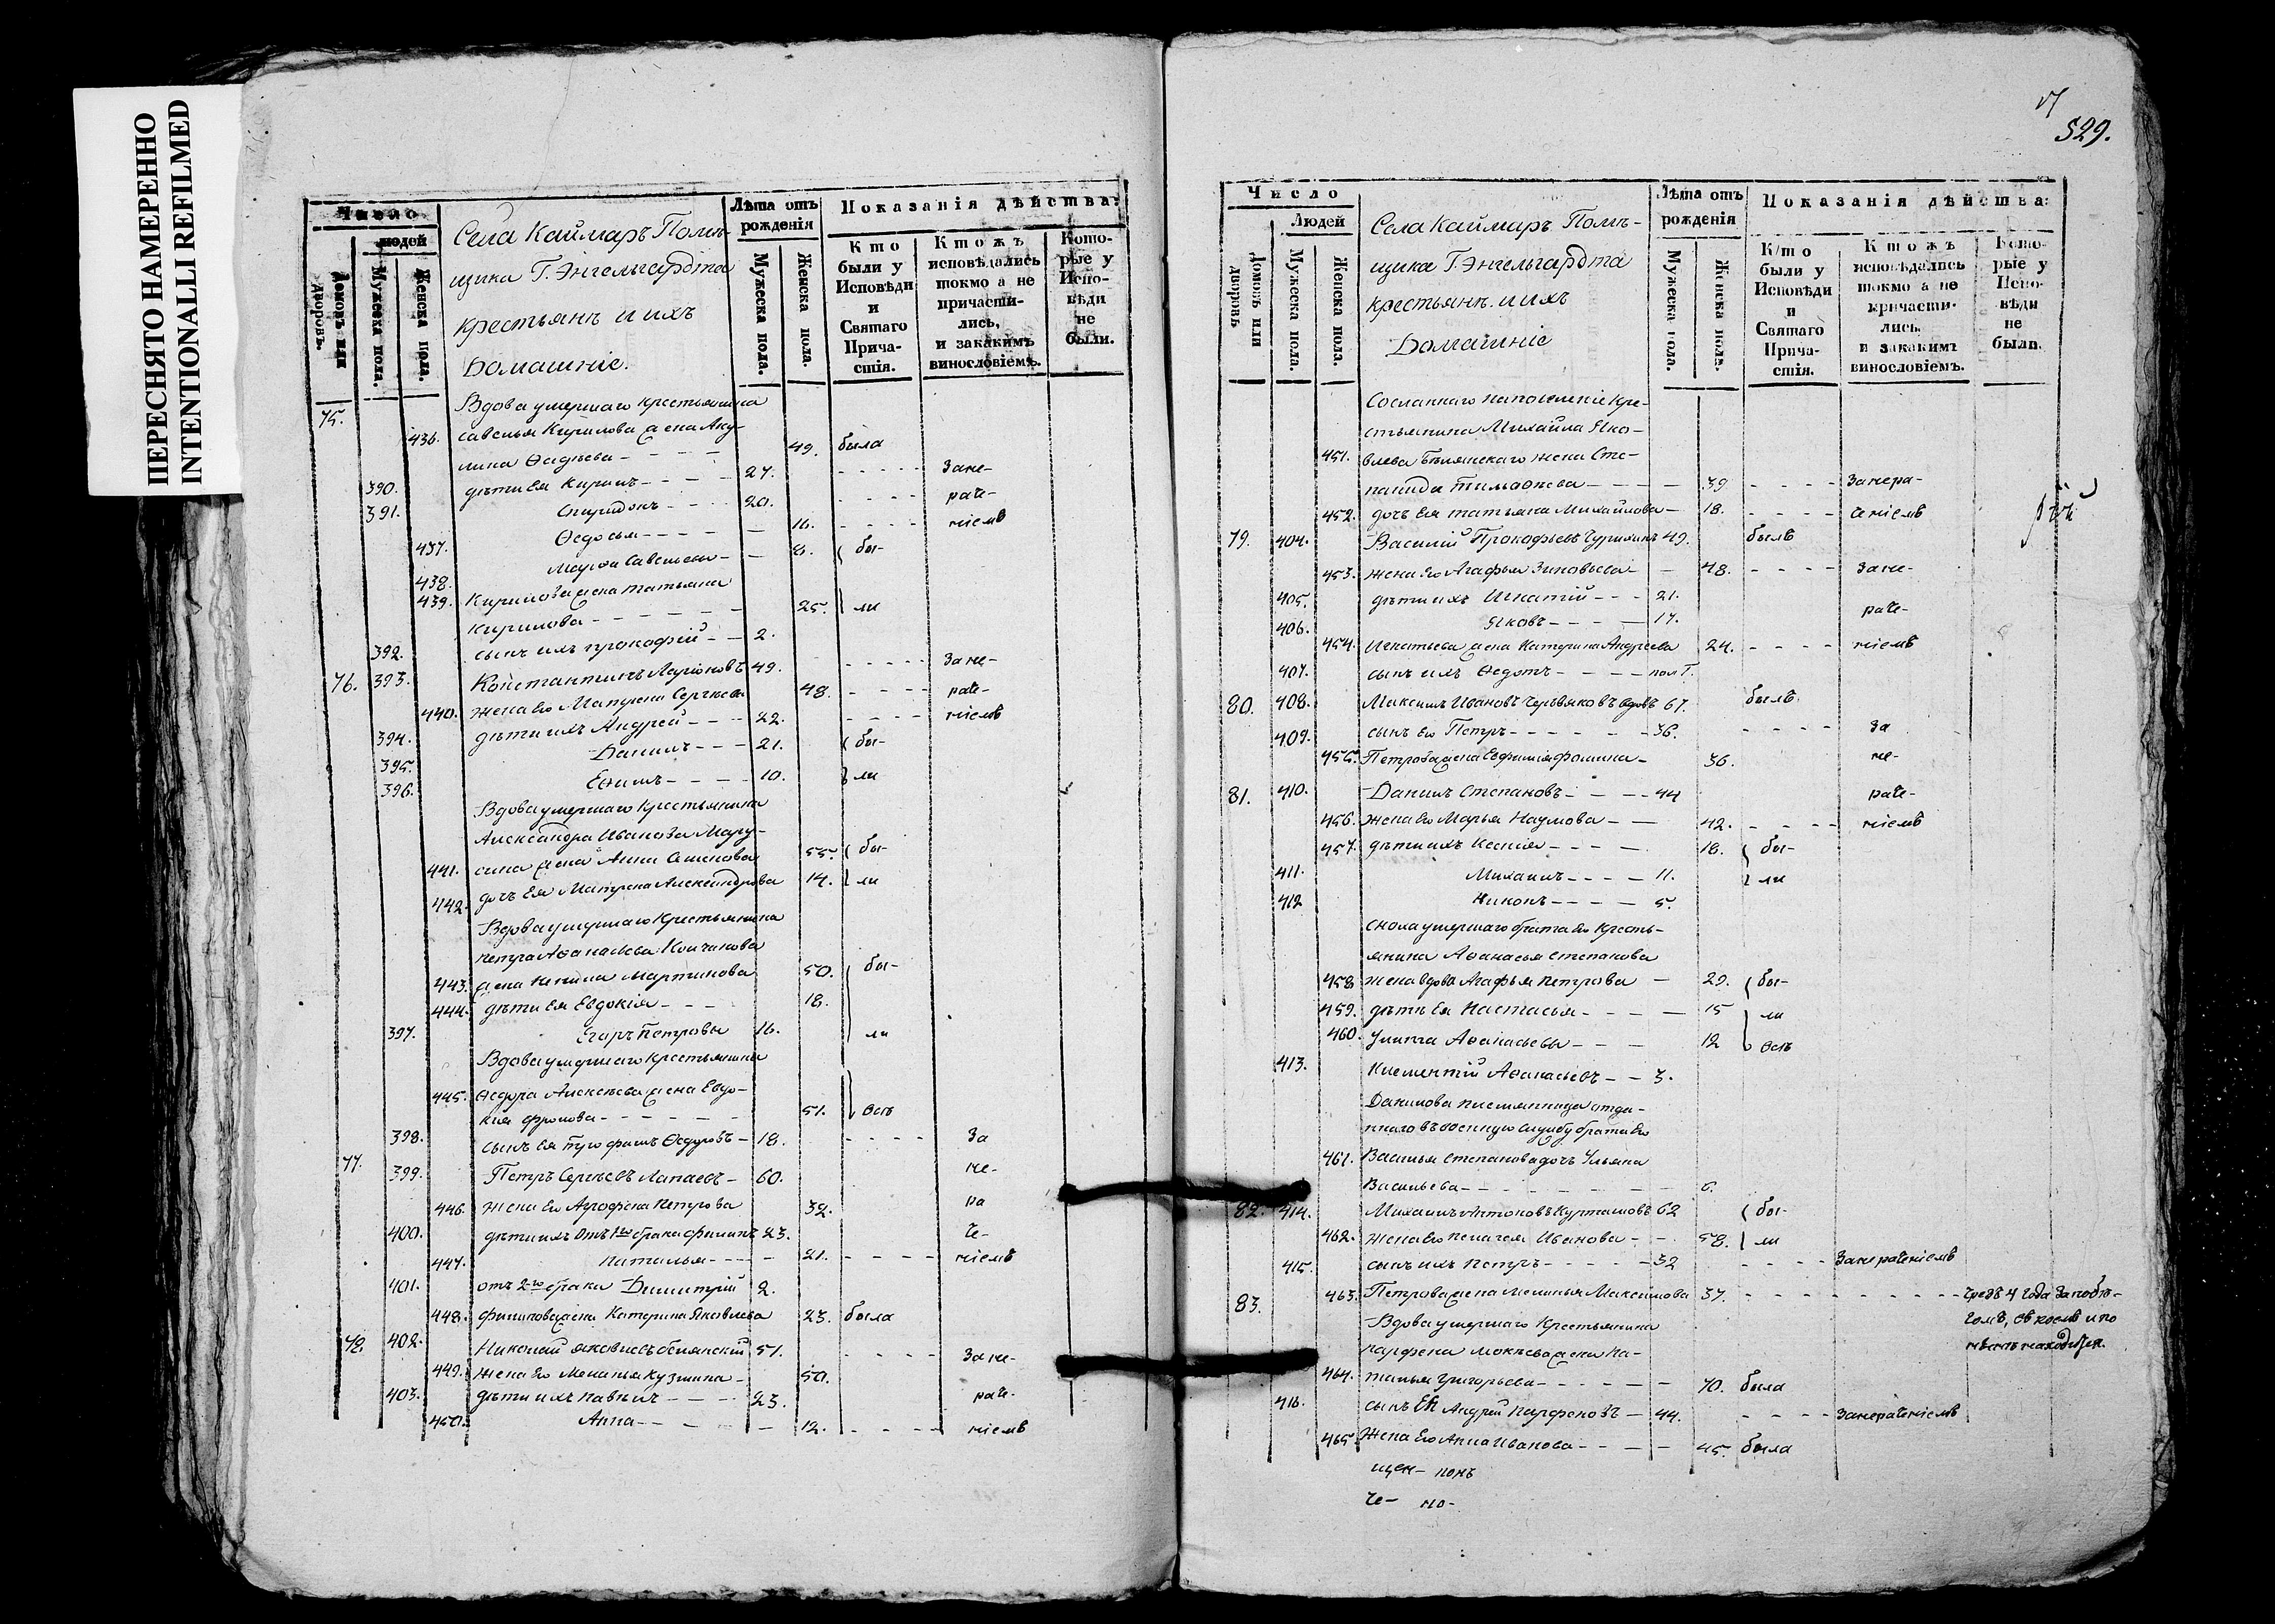 ПЕРЕСНЯТО НАМЕРЕННО
INTENTIONALLI REFILMED
Число
людей
Домовъ или дворовъ.
Мужеска пола.
Женска пола.
Села Каймаръ Помѣ-
щика Г. Энгельгардта
крестьянѣ и ихъ
Домашніе.
Лѣта отъ рожденія
Мужеска пола.
Женска пола.
Показанія дѣйства:
Кто были у Исповѣди и Святаго Причастія.
Ктожъ исповѣдались токмо а не причасти-
лись, и закакимъ винословіемъ.
Кото-
рые у Испо-
вѣди не были.
75. Вдова умершаго крестьянина
436. Савелья Кирилова жена Аку-
лина Ѳадѣева - - - - 49. была
390. дѣти Ея Кирилъ - - - - 27. - - - - - Зане-
391. Спиридонъ - - - 20. - - - - раче-
437. Ѳедосья - - - - - 16. - - - - ніемъ
438. Марѳа Савельева - - 8. бы-
439. Кирилова жена татьяна
Кирилова - - - - - 25. ли
392. сынъ ихъ прокофій - - 2.
76. 393. Константинъ Ларіоновъ 49. - - - - - Зане-
440. жена Ево Матрена Сергѣева 48. - - - - раче-
394. дѣти ихъ Андрей - - - 22. - - - - - ніемъ
395. Данилъ - - - 21. бы-
396. Еѳимъ - - - - 10. ли
Вдова умершаго Крестьянина
Александра Иванова Мару-
441. сина жена Анна Семенова 55. бы-
442. дочь Ея Матрена Александрова 14. ли
Вдова умершаго Крестьянина
петра Аѳанасьева
443. жена Мартинова 50. бы-
444. дѣти Ея Евдокія - - - 18.
397. Егоръ Петровы 16. ли
Вдова умершаго Крестьянина
445. Ѳедора Алексѣева жена Евдо-
кия Фролова - - - - - - 51. всѣ
398. сынъ Ея трофимъ Ѳедоровъ - 18. - - - - За
77. 399. Петръ Сергѣевъ Лапаевъ - 60. не-
446. жена Ево Аграфена Петрова 32. ра
400. дѣти ихъ отъ 1го брака филипъ 23. че-
447. Наталья - - - - 21. - - - - ніемъ
401. отъ 2го брака Димитрій 2.
448. филипова жена Катерина Яковлева 23. была
78. 402. Николай яковлевъ белянскій 51. - - - - Зане-
449. жена Ево Меланья Кузмина - 50.
403. дѣти ихъ павелъ - - - - 23. раче-
450. Анна - - - - - 12. - - - - ніемъ
529.
Число
Людей
Домовъ или дворовъ
Мужеска пола.
Женска пола.
Села Каймаръ Помѣ-
щика Г. Энгельгардта
крестьянѣ. и ихъ
Домашніе
Лѣта отъ рожденія
Мужеска пола.
Женска пола.
Показанія дѣйства:
Кто были у Исповѣди и Святаго Прича-
стія.
Ктожъ исповѣдались токмо а не причасти-
лись. и закакимъ винословіемъ.
Кото-
рые у Испо-
вѣди не были.
Сосланнаго напоселеніе кре-
стьянина Михайла Яко-
451. влева Белянскаго жена Сте-
панида тимоѳеева - - - - 39 - - - - Занера-
452. дочь Ея татьяна Михайлова - 18. - - - - ченіемъ
79. 404. Василій Прокофьевъ 49. былъ
453. жена Ево Агафья Зиновьева - - 48. - - - - Зане-
405. дѣти ихъ Игнатій - - - 21.
406. Яковъ - - - - 17. раче-
454. Игнатьева жена Катерина Андреева 24. - - - - ніемъ
407. сынъ ихъ Ѳедотъ - - - - пол Г.
80. 408. Максимъ Ивановъ Червяковъ вдовъ 67. былъ
409. сынъ Ево Петръ - - - - - - 36. - - - - За
455. Петрова жена Ефимія фомина - 36. не-
81. 410. Данилъ Степановъ - - - - 44 раче-
456. жена Ево Марья Наумова - - 42. - - - - ніемъ
457. дѣти ихъ Ксенія - - - - 18. бы-
411. Михаилъ - - - - 11. ли
412 Никонъ - - - - 5.
Снохa умершаго брата Ево Кресть-
янина Аѳанасья Степанова
458 жена вдова Агафья Петрова - 29. бы-
459. дѣти Ея Настасья - - - - 15 ли
460. Улита Аѳанасьевы - - - 12 всѣ
413. Клементій Аѳанасьевъ - - 3.
Данилова племянница отда-
ннаго въ военную службу брата Ево
461. Василья Степанова дочь Ульяна
Васильева - - - - - - - 6.
82. 414. Михаилъ Антоновъ Курташовъ 62 бы-
462. жена Ево пелагея Иванова - - 58. ли
415. сынъ ихъ Петръ - - - - - 32 - - - - Занераченіемъ
83. 463. Петрова жена Меланья Максимова 37. - - - - - - - - - чрезъ 4 года за побѣ-
гомъ, въ коемъ и по
нынѣ находится.
Вдова умершаго Крестьянина
парфена мокѣева жена На-
464. талья Григорьева - - - - - 70. была
416. сынъ Ея Андрей Парфеновъ - 44. - - - - Занераченіемъ
465. Жена Ево Анна Иванова - - - - 45. была
щен- никъ
че- но-